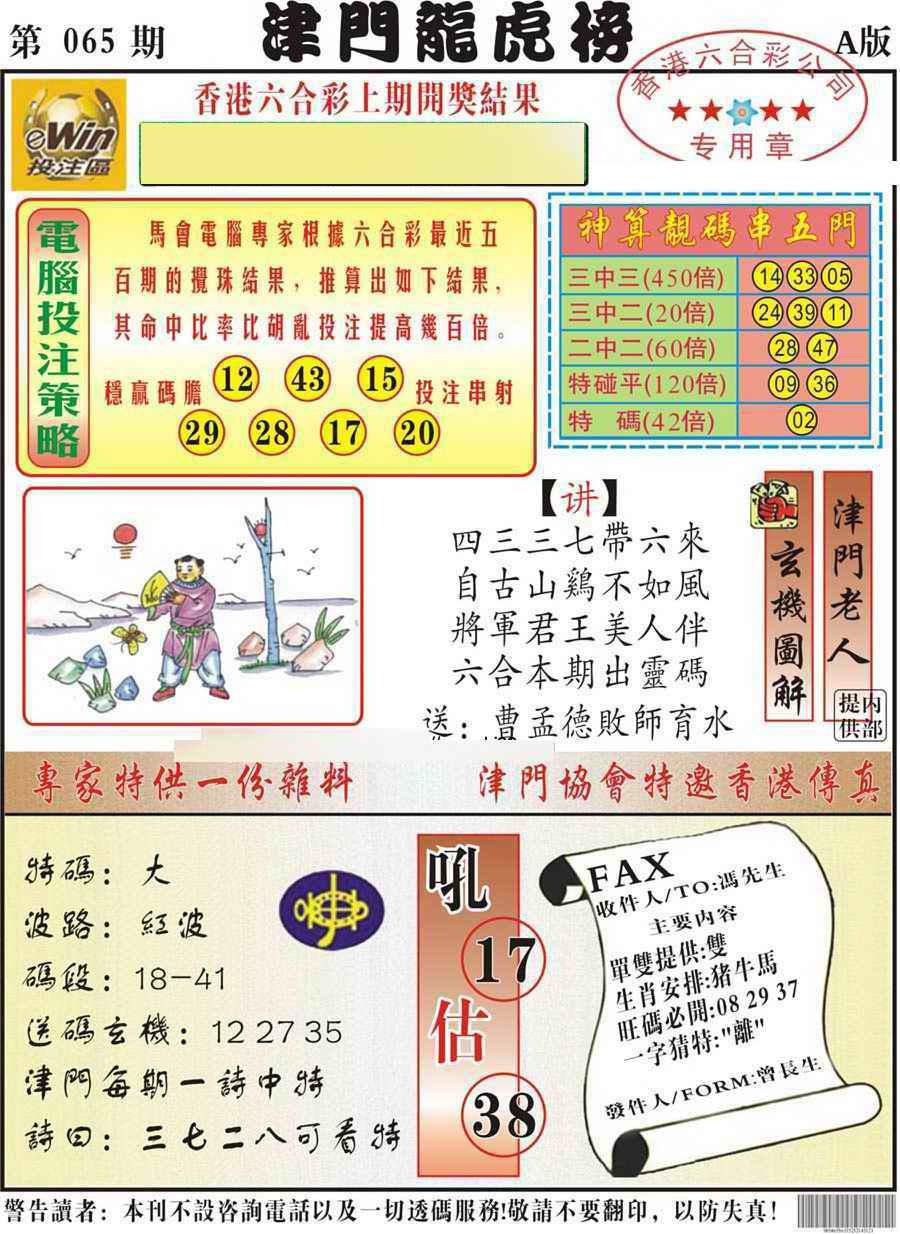 第 065 期
津門龍虎榜
A版
eWin
投注區
香港六合彩上期開獎結果
香港六合彩公司
专用章
電腦投注策略
馬會電腦專家根據六合彩最近五
百期的攪珠結果，推算出如下結果，
其命中比率比胡亂投注提高幾百倍。
穩贏碼膽 12 43 15 投注串射
29 28 17 20
神算靚碼串五門
三中三(450倍) 14 33 05
三中二(20倍) 24 39 11
二中二(60倍) 28 47
特碰平(120倍) 09 36
特 碼(42倍) 02
【讲】
四三三七帶六來
自古山鷄不如風
將軍君王美人伴
六合本期出靈碼
送：曹孟德敗師育水
玄機圖解
津門老人
内部
提供
專家特供一份雜料
津門協會特邀香港傳真
特碼：大
波路：紅波
碼段：18-41
送碼玄機：12 27 35
津門每期一詩中特
詩曰：三七二八可看特
吼
17
估
38
FAX
收件人/TO:馮先生
主要内容
單雙提供:雙
生肖安排:猪牛馬
旺碼必開:08 29 37
一字猜特:"離"
發件人/FORM:曾長生
警告讀者：本刊不設咨詢電話以及一切透碼服務!敬請不要翻印，以防失真!